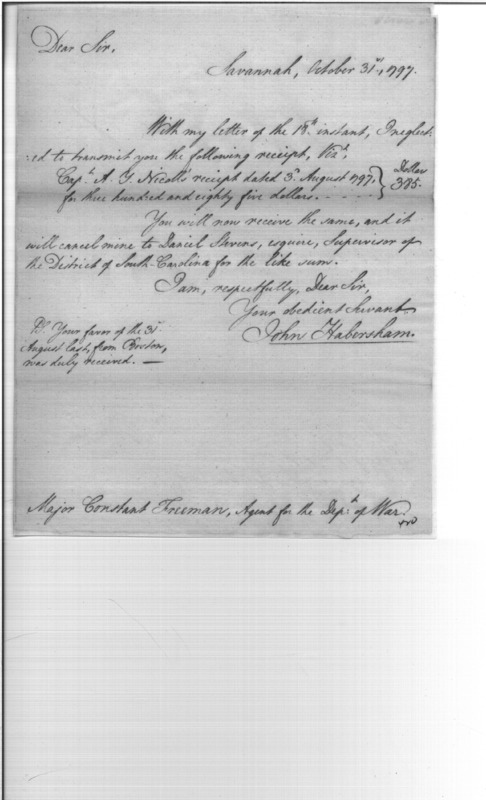 Dear Sir,
Savannah, October 31st, 1797.
With my letter of the 18th instant, I neglect-
:ed to transmit you the following receipt, Vizt,
Capt. A. Y. Nicoll's receipt dated 3d. August 1797, } Dollars
for three hundred and eighty five dollars. - - - - - } 385.
You will now receive the same, and it
will cancel mine to Daniel Stevens, esquire, Supervisor of
the District of South-Carolina for the like sum.
I am, respectfully, Dear Sir,
Your obedient Servant
John Habersham.
PS. Your favor of the 31st
August last, from Boston,
was duly received. —
Major Constant Freeman, Agent for the Dept. of War.